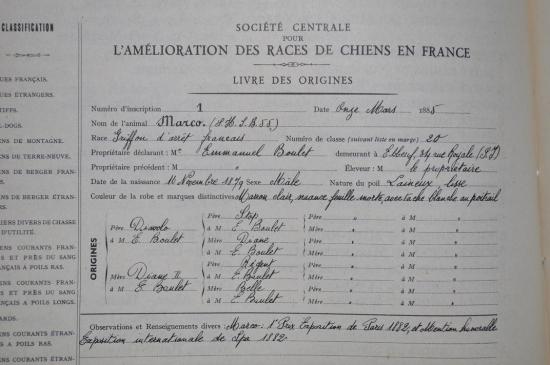 CLASSIFICATION
UES FRANÇAIS.
UES ÉTRANGERS.
TIFFS.
L-DOGS.
ENS DE MONTAGNE.
ENS DE TERRE-NEUVE.
ENS DE BERGER FRAN-
ENS DE BERGER ÉTRAN-
IENS DIVERS DE CHASSE
D'UTILITÉ.
IENS COURANTS FRAN-
IS ET PRÈS DU SANG
NÇAIS A POILS RAS.
IENS COURANTS FRAN-
S ET PRÈS DU SANG
NÇAIS A POILS LONGS.
ARDS.
ENS COURANTS ÉTRAN-
S A POILS RAS.
ENS COURANTS ÉTRAN-
SOCIÉTÉ CENTRALE
POUR
L'AMÉLIORATION DES RACES DE CHIENS EN FRANCE
LIVRE DES ORIGINES
Numéro d'inscription 1 Date Onze Mars 1885
Nom de l'animal Marco.
Race Griffon d'arrêt français Numéro de classe (suivant liste en marge) 20
Propriétaire déclarant : Mr Emmanuel Boulet demeurant à Elbeuf, 34 rue Royale (S.I)
Propriétaire précédent : M " Éleveur : M le propriétaire
Date de la naissance 10 Novembre 1879 Sexe Mâle Nature du poil Laineux, lisse
Couleur de la robe et marques distinctives Marron clair, nuance feuille morte, avec tache blanche au poitrail
ORIGINES
Père Diavolo
à M E. Boulet
Mère Diane II
à M E. Boulet
Père Stop
à M E. Boulet
Mère Diane
à M E. Boulet
Père Régent
à M E. Boulet
Mère Belle
à M E. Boulet
Père " à M "
Mère " à M "
Père " à M "
Mère " à M "
Père " à M "
Mère " à M "
Père " à M "
Mère " à M "
Observations et Renseignements divers : Marco : 1er Prix Exposition de Paris 1882, et Mention honorable
Exposition internationale de Spa 1882.